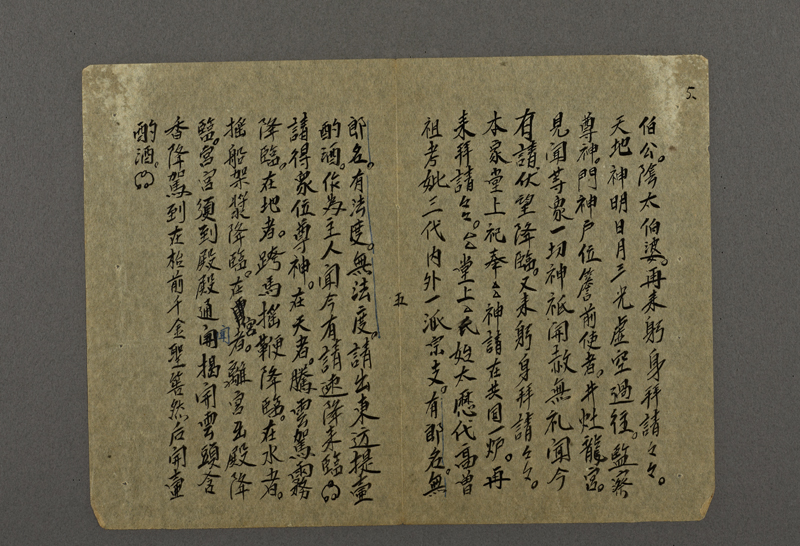 5
伯公。陰太伯婆。再來躬身拜請々々。
天地神明日月三光虛空過往。監察
尊神。門神戶位簷前使者。井灶龍宮。
見聞等衆一切神祇開赦無礼聞今
有請伏望降臨。又來躬身拜請々々。
本家堂上祀奉厶神請在共同一炉。再
來拜請々々。厶堂上厶氏始太歷代高曾
祖考妣三代內外一派宗支。有郎名。無
五
郎名。有法度。無法度。請出東迈提壶
酌酒。作為主人聞今有請速降來臨
請得衆位尊神。在天者。騰雲駕霧
降臨。在地者。跨馬搖鞭降臨。在水者。
搖船架漿降臨。在宮者。離宮出殿降
臨。宮宮須到殿殿通開揭開雲頭含
香降駕到在枱前千金聖筶然后開壷
酌酒。